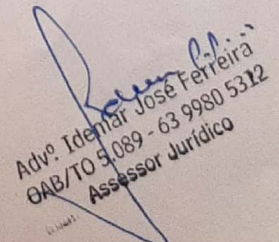 Advº. Idemar José Ferreira
OAB/TO 5.089 - 63 9980 5312
Assessor Jurídico